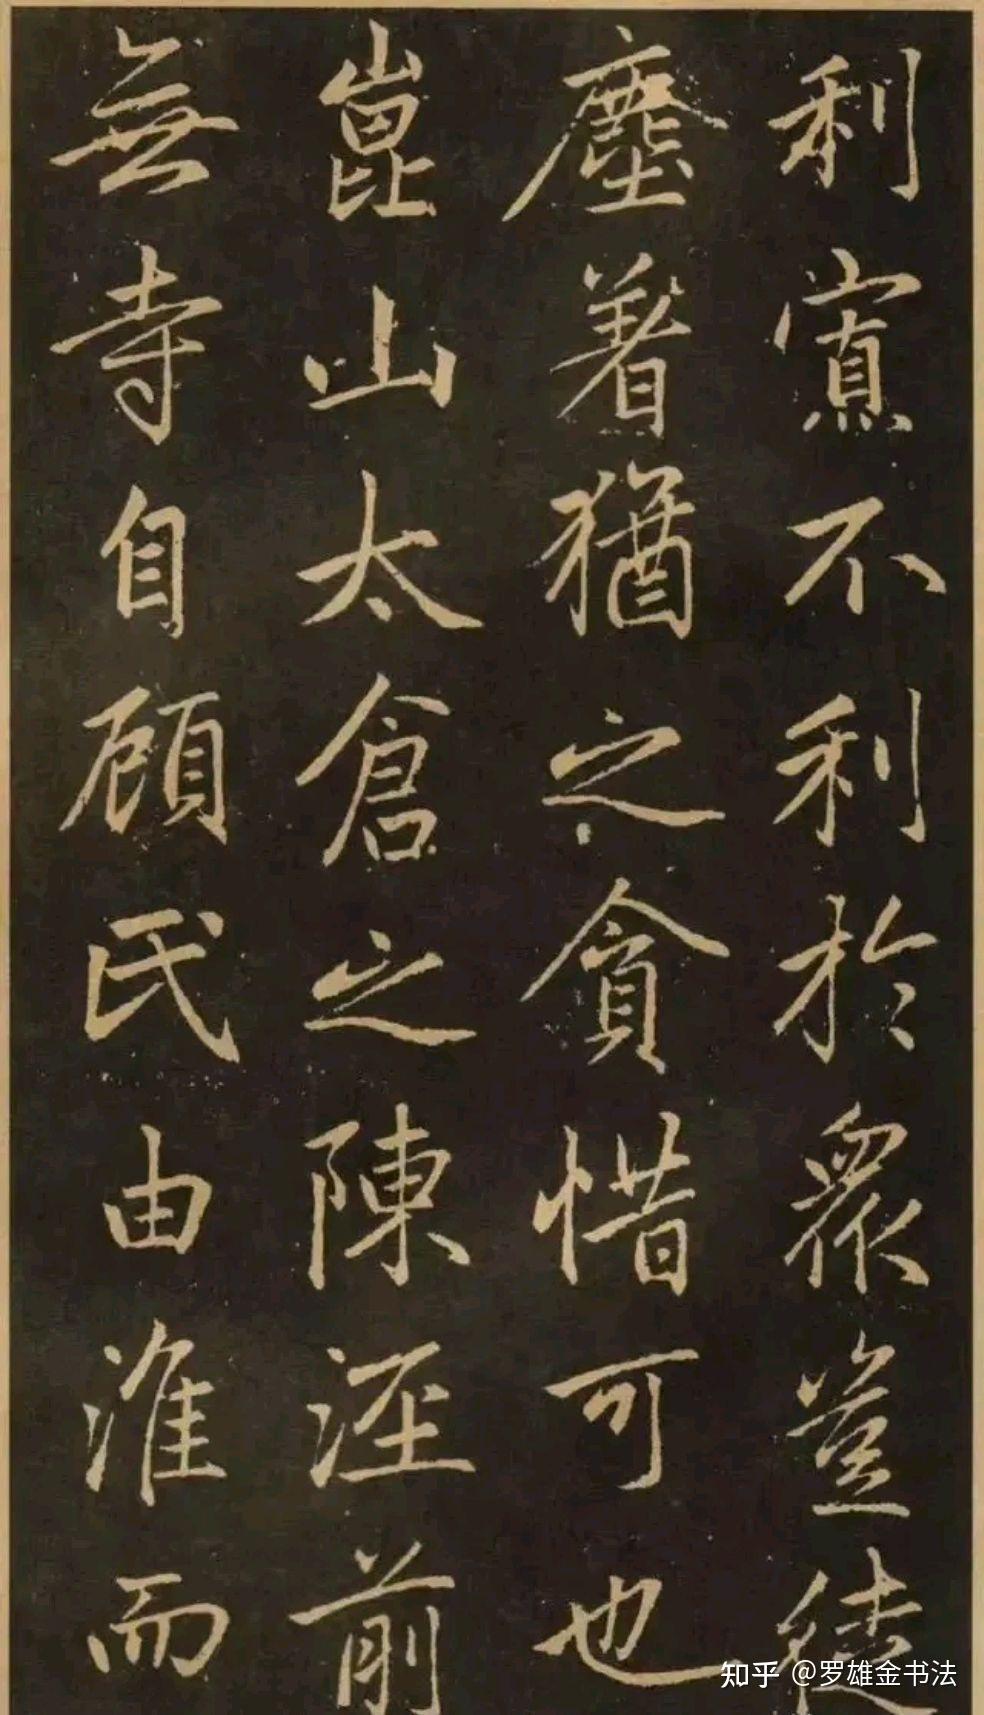 利寘不利於衆豈徒
塵着猶之貪惜可也
崑山太倉之陳涇前
無寺自顧氏由淮而
知乎 @罗雄金书法